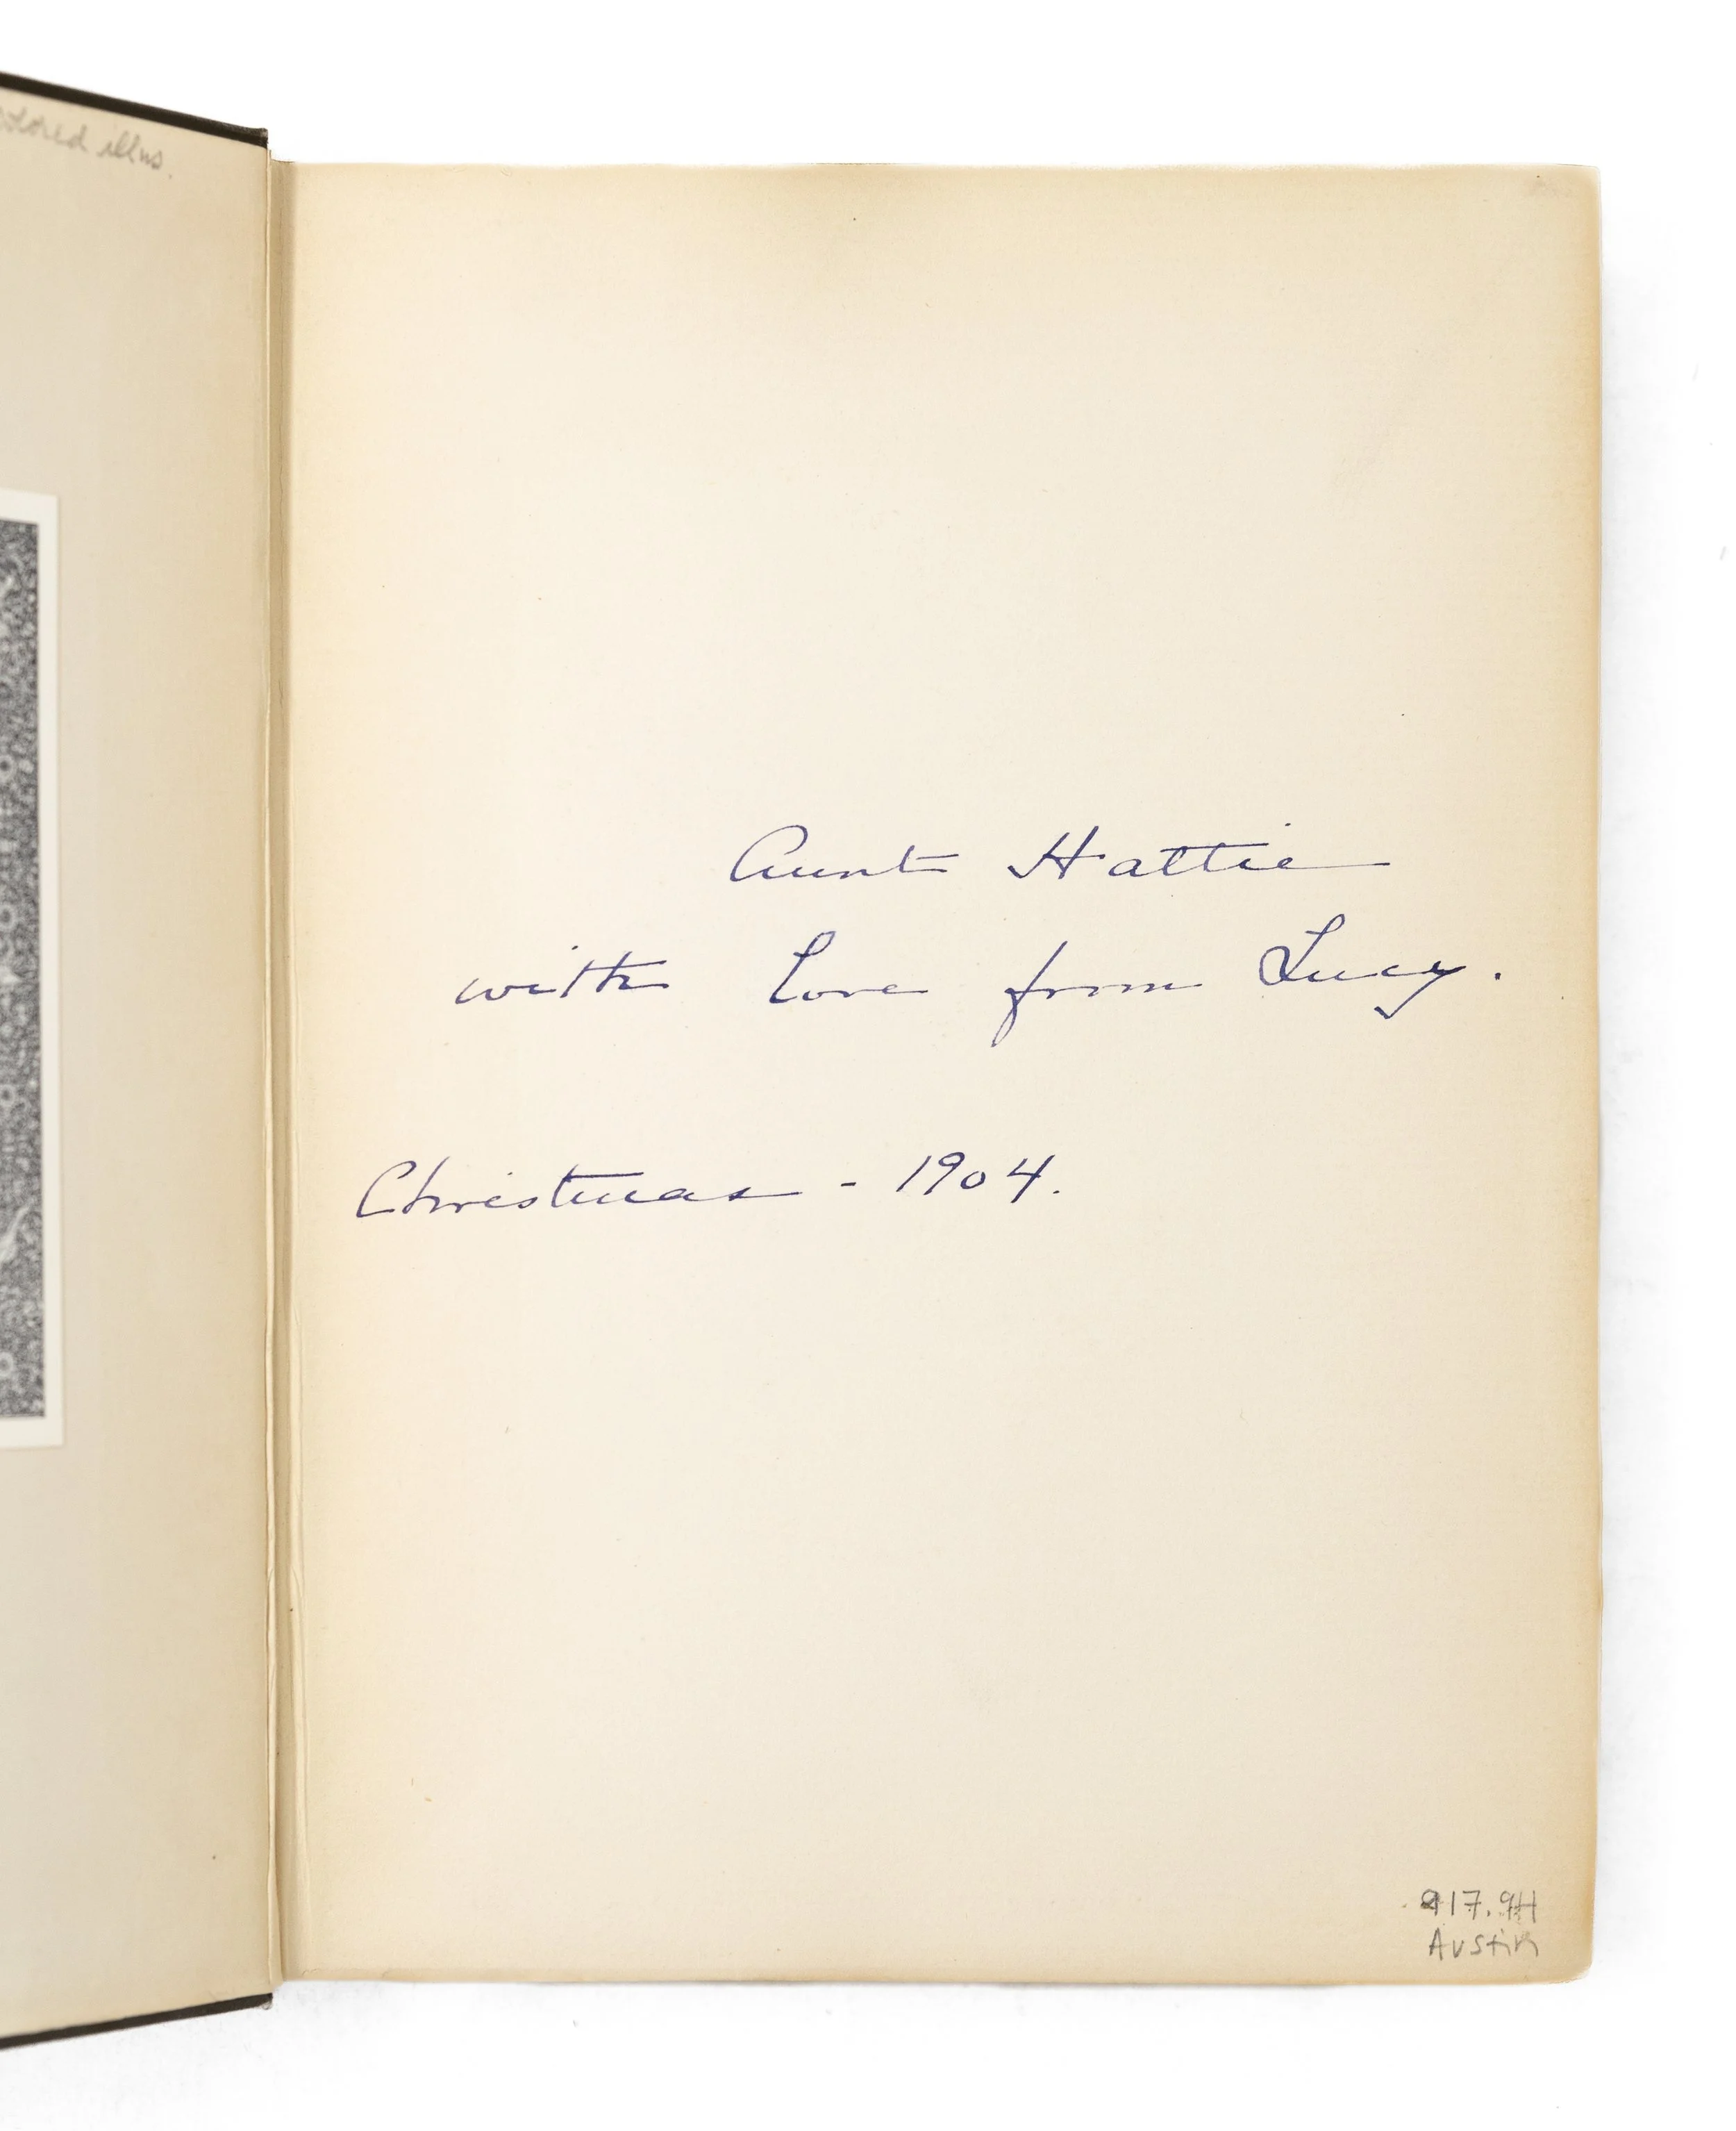 colored illus.
Aunt Hattie
with love from Lucy.
Christmas - 1904.
917.94
Austin